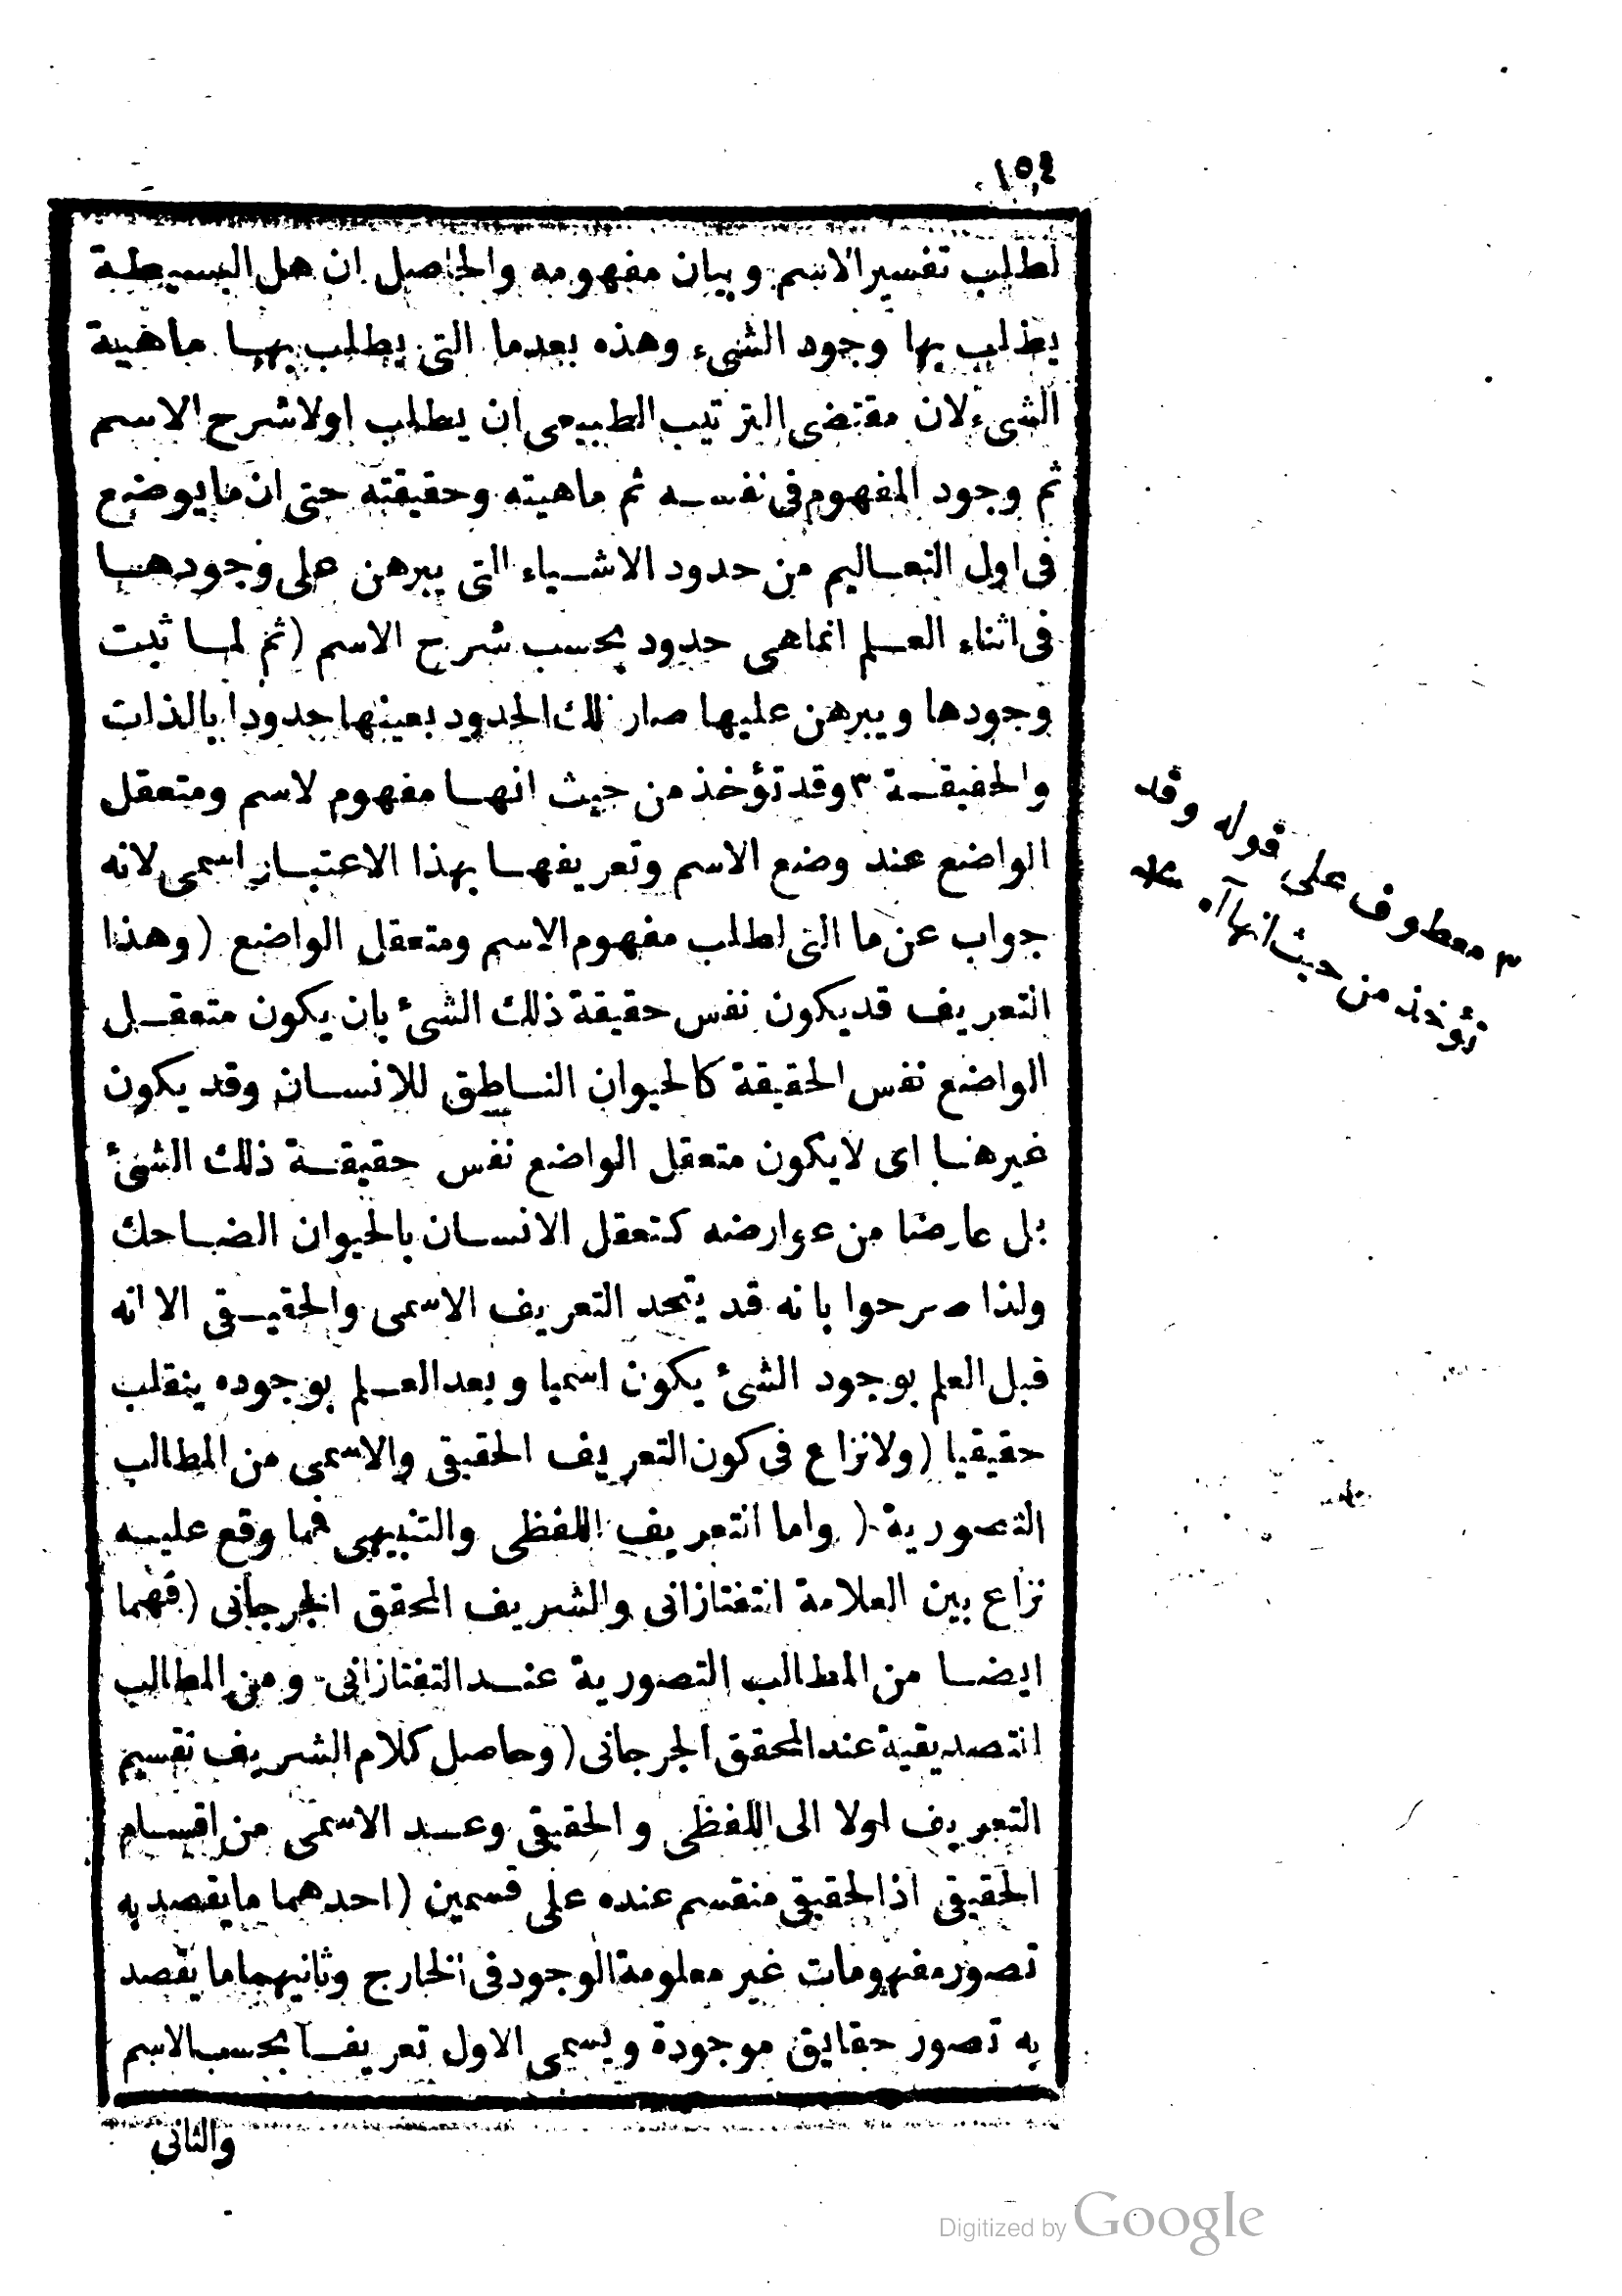 ١٥٤
لطلب تفسير الاسم وبيان مفهومه والحاصل ان هل البسيطة
يطلب بها وجود الشيء وهذه بعد ما التى يطلب بها ماهية
الشيء لان مقتضى الترتيب الطبيعى ان يطلب اولا شرح الاسم
ثم وجود المفهوم فى نفسه ثم ماهيته وحقيقته حتى ان ما يوضع
فى اول التعاليم من حدود الاشياء التى يبرهن على وجودها
فى اثناء العلم انما هى حدود بحسب شرح الاسم (ثم لما ثبت
وجودها ويبرهن عليها صار تلك الحدود بعينها حدودا بالذات
والحقيقة ٣ وقد تؤخذ من حيث انها مفهوم لاسم ومتعقل
الواضع عند وضع الاسم وتعريفها بهذا الاعتبار اسمى لانه
جواب عن ما التى لطلب مفهوم الاسم ومتعقل الواضع (وهذا
التعريف قد يكون نفس حقيقة ذلك الشئ بان يكون متعقل
الواضع نفس الحقيقة كالحيوان الناطق للانسان وقد يكون
غيرها اى لا يكون متعقل الواضع نفس حقيقة ذلك الشئ
بل عارضا من عوارضه كتعقل الانسان بالحيوان الضاحك
ولذا صرحوا بانه قد يتحد التعريف الاسمى والحقيقى الا انه
قبل العلم بوجود الشئ يكون اسميا وبعد العلم بوجوده ينقلب
حقيقيا (ولا نزاع فى كون التعريف الحقيقى والاسمى من المطالب
التصورية (واما التعريف اللفظى والتنبيهى فما وقع عليه
نزاع بين العلامة التفتازانى والشريف المحقق الجرجانى (فهما
ايضا من المطالب التصورية عند التفتازانى ومن المطالب
التصديقية عند المحقق الجرجانى (وحاصل كلام الشريف تقسيم
التعريف اولا الى اللفظى والحقيقى وعد الاسمى من اقسام
الحقيقى اذ الحقيقى منقسم عنده على قسمين (احدهما ما يقصد به
تصور مفهومات غير معلومة الوجود فى الخارج وثانيهما ما يقصد
به تصور حقايق موجودة ويسمى الاول تعريفا بحسب الاسم
والثانى
٣ معطوف على قوله وقد
تؤخذ من حيث انها آه
Digitized by Google